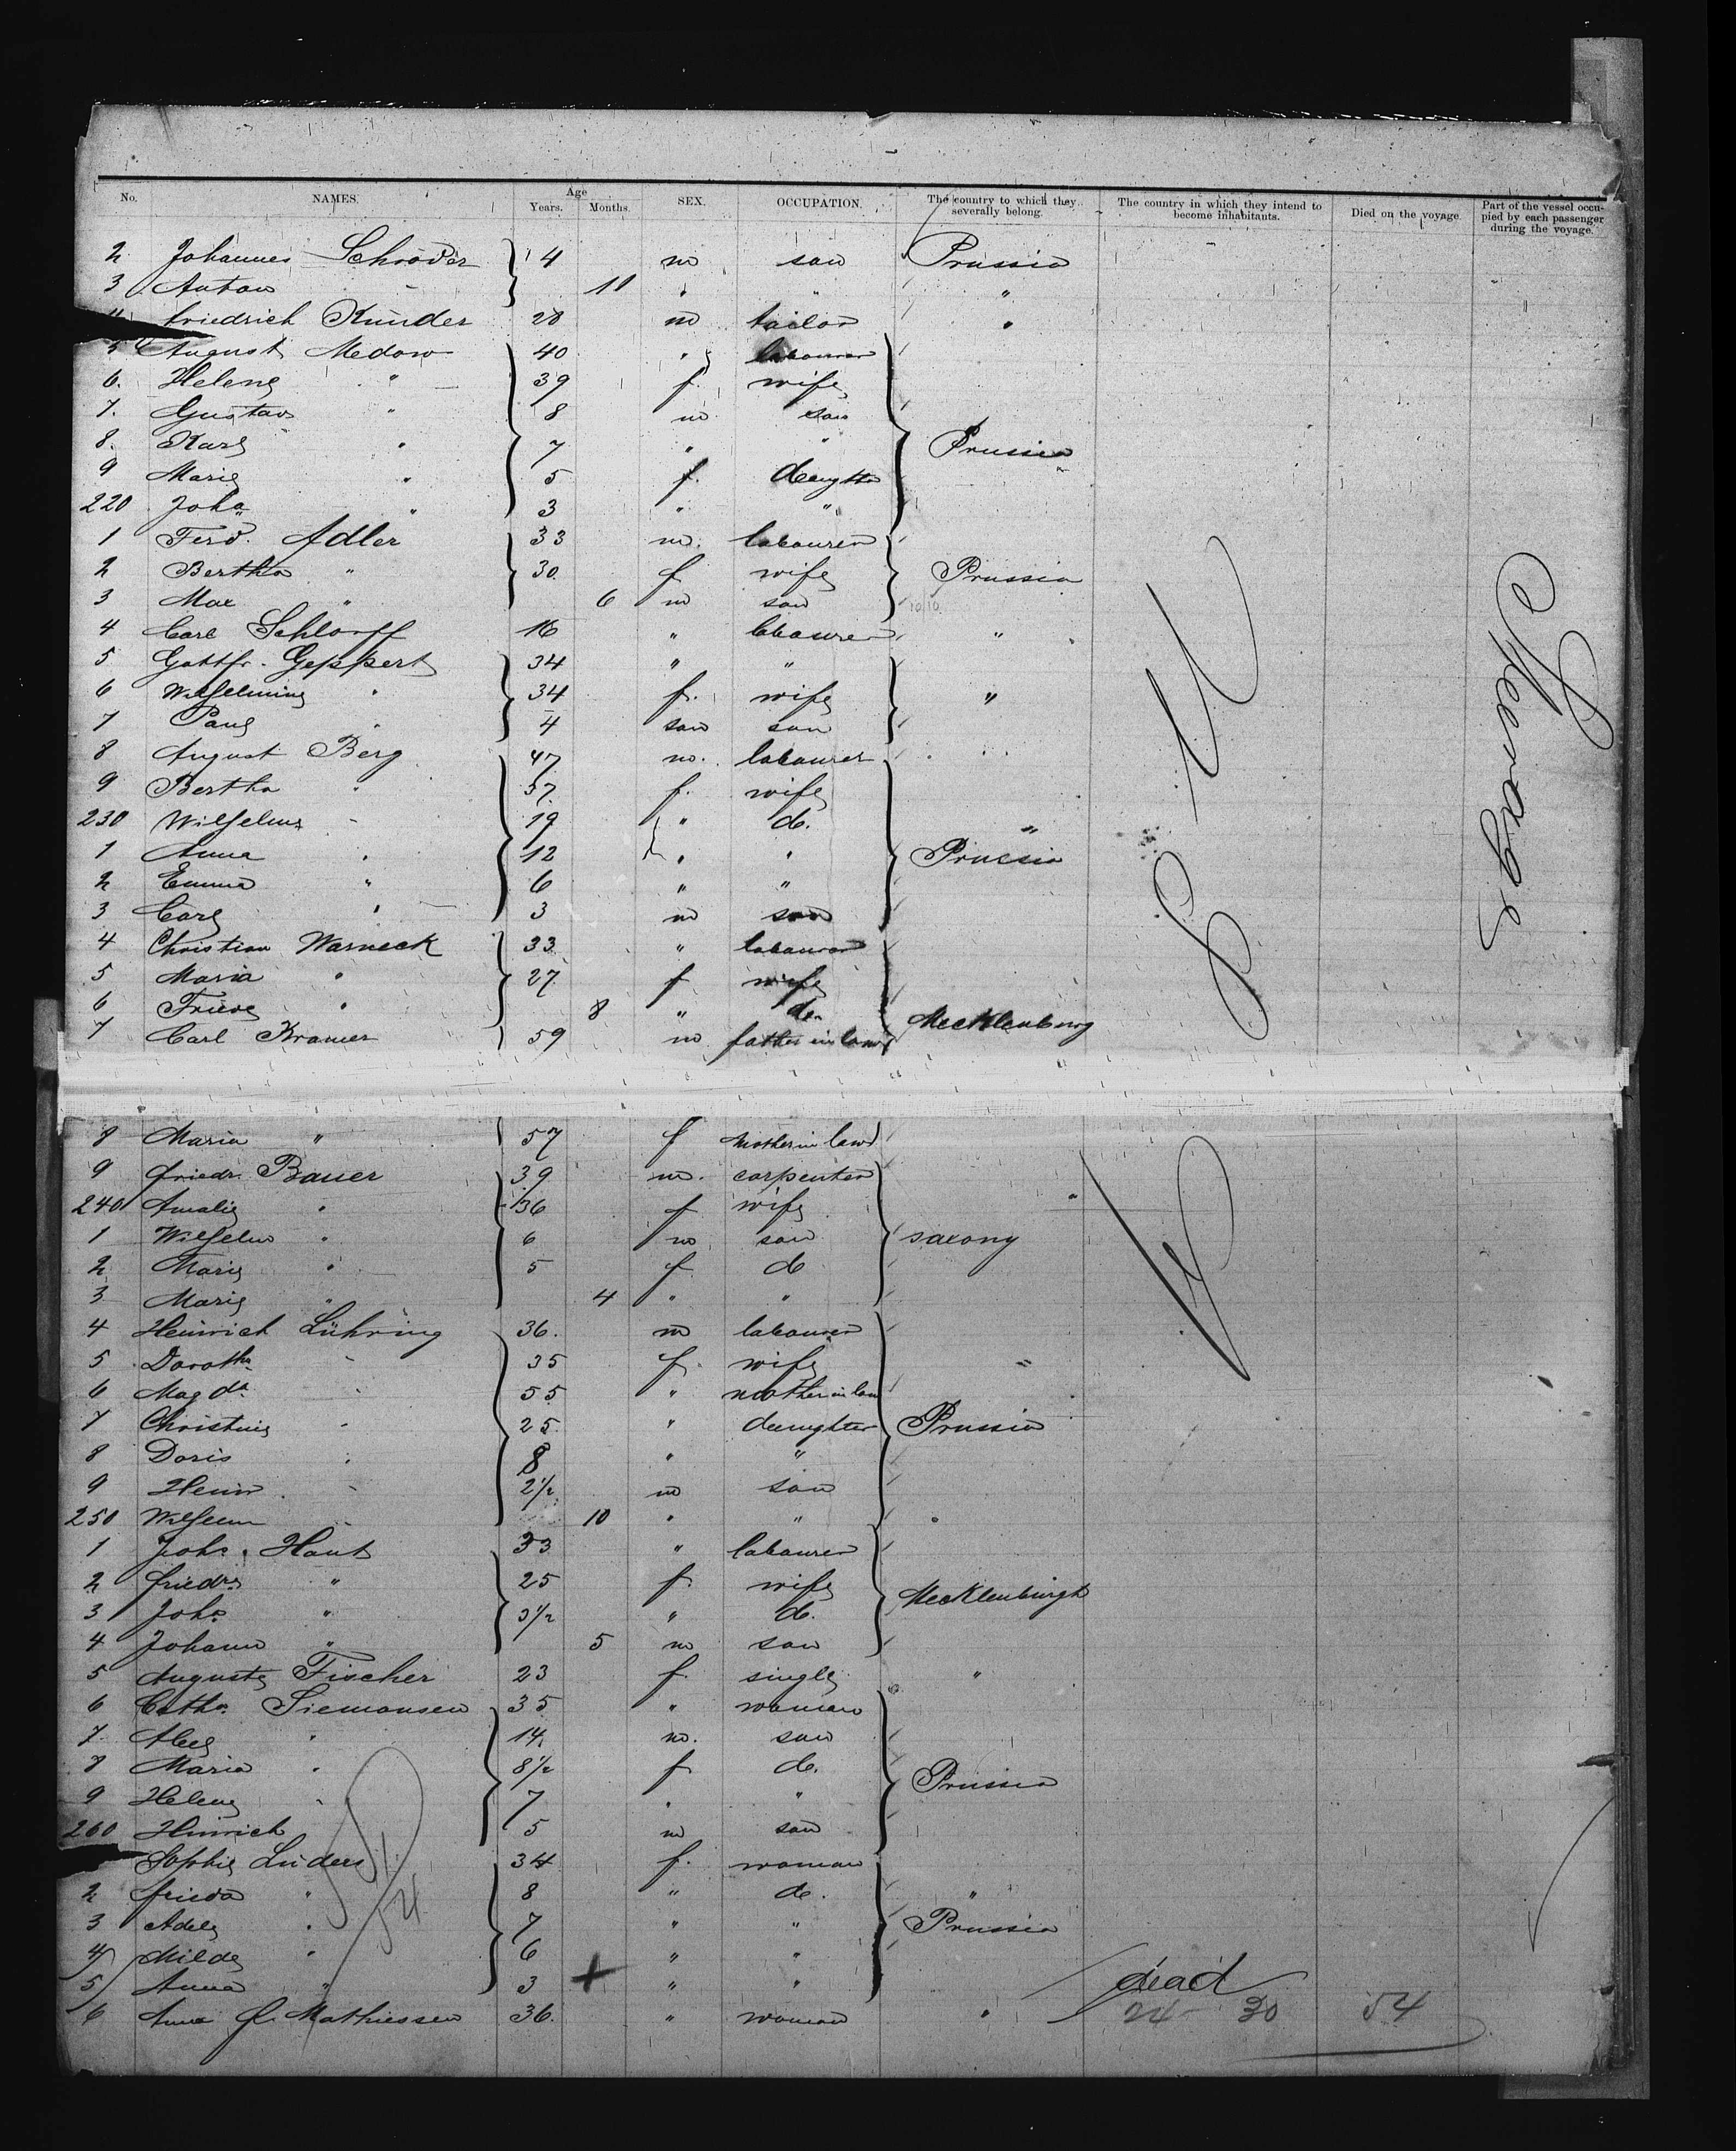 No. NAMES. Age Years. Months. SEX. OCCUPATION. The country to which they severally belong. The country in which they intend to become inhabitants. Died on the voyage Part of the vessel occupied by each passenger during the voyage.
2 Johannes Schröder 4 m son Prussia
3 Anton " 11 " " "
Friedrich Kunder 28 m tailor "
5 August Medow 40 " labourer
6. Helene " 39 f. wife
7. Gustav " 8 m son
8. Karl " 7 " " Prussia
9 Marie " 5 f. daughter
220 Joha " 3 " "
1 Ferd. Adler 33 m. labourer
2 Bertha " 30. f wife Prussia
3 Max " 6 m son
4 Carl Schlorff 16 " labourer "
5 Gottfr. Geppert 34 " "
6 Wilhelmine " 34 f. wife "
7 Paul " 4 son son
8 August Berg 47 m. labourer
9 Bertha " 37. f. wife
230 Wilhelm " 19 " do. "
1 Anna " 12 " " Prussia
2 Emma " 6 " "
3 Carl " 3 m son
4 Christian Warneck 33 " labourer
5 Maria " 27. f wife
6 Friede " 8 " do. Mecklenburg
7 Carl Kramer 59 m father in law
8 Maria " 57 f mother in law
9 Friedr. Bauer 39 m. carpenter
240 Amalie " 36 f wife
1 Wilhelm " 6 m son saxony
2 Marie " 5 f do
3 Marie " 4 " "
4 Heinrich Lühring 36. m labourer
5 Doroth. " 35 f. wife "
6 Magda " 55 " mother in law
7 Christine " 25. " daughter Prussia
8 Doris " 8 " "
9 Heinr. " 2½ m son
250 Wilhelm " 10 " " "
1 Joh. Haut 33 " labourer
2 Friedr. " 25 f. wife Mecklenburgh
3 Joh. " 3½ " do.
4 Johann " 5 m son
5 Auguste Fischer 23 f. single "
6 Cath. Siemonsen 35 " woman
7. " 14. m. son
8 Maria " 8½ f do. Prussia
9 Helene " 7 " "
260 Hinrich 5 m son
Sophie Lüders 34 f. woman
2 Frieda " 8 " do. "
3 Adele " 7 " " Prussia
4 Milde " 6 " "
5 Anna " 3 + " " dead
6 Anna Mathiessen 36. " woman " 24 30 54
U S A
Steerage